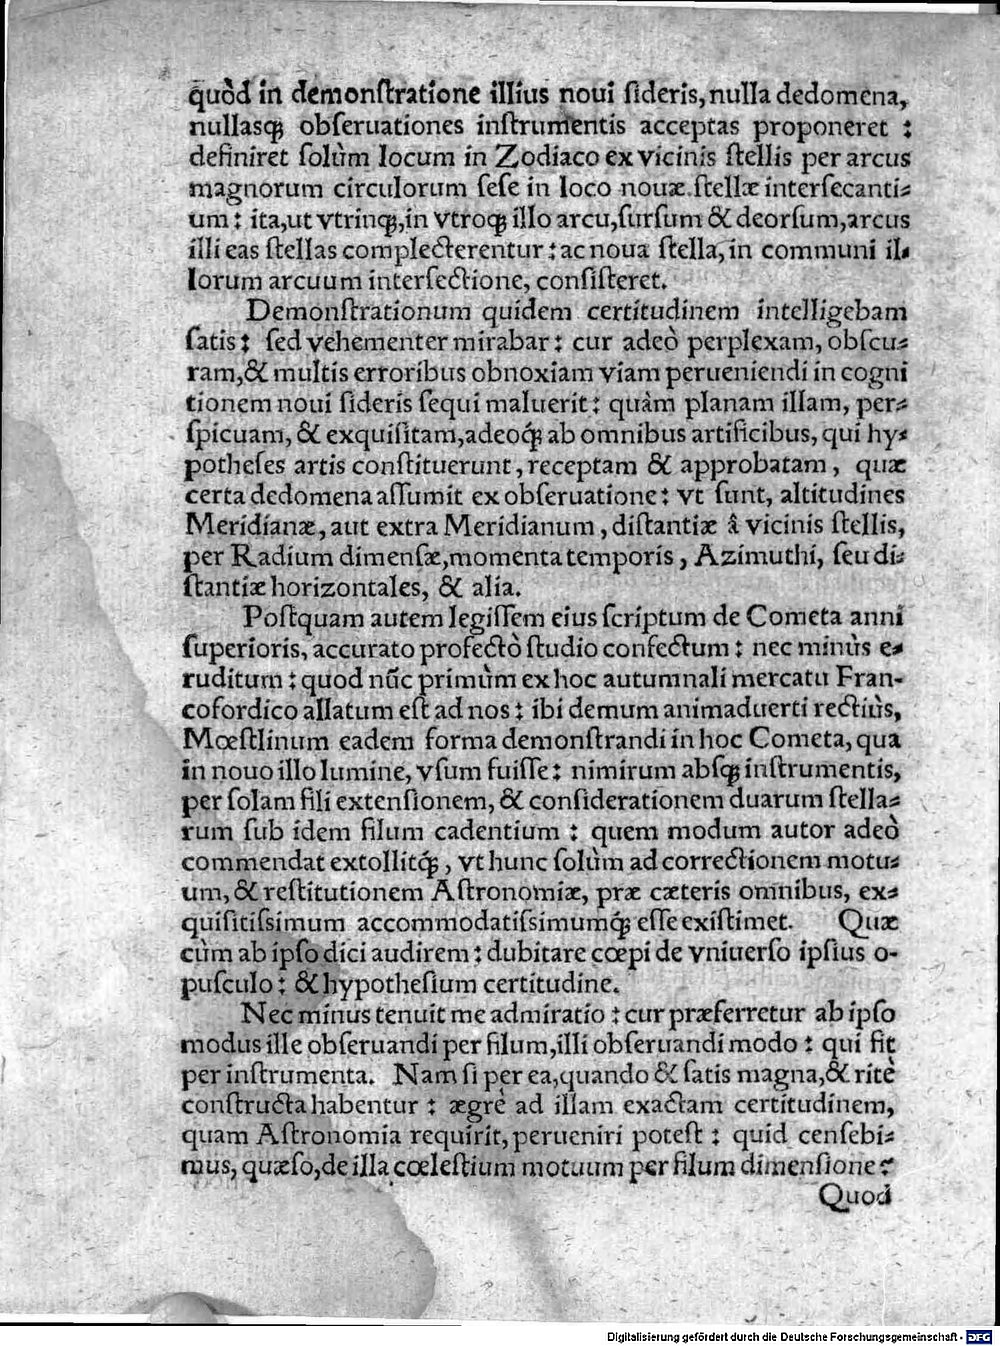 quòd in demonſtratione illius noui ſideris, nulla dedomena,
nullasq́ꝫ obſeruationes inſtrumentis acceptas proponeret :
definiret ſolùm locum in Zodiaco ex vicinis ſtellis per arcus
magnorum circulorum ſeſe in loco nouæ ſtellæ interſecanti⸗
um : ita, ut vtrinqꝫ, in vtroqꝫ illo arcu, ſurſum & deorſum, arcus
illi eas ſtellas complecterentur : ac noua ſtella, in communi il⸗
lorum arcuum interſectione, conſiſteret.
Demonſtrationum quidem certitudinem intelligebam
ſatis : ſed vehementer mirabar : cur adeò perplexam, obſcu⸗
ram, & multis erroribus obnoxiam viam perueniendi in cogni
tionem noui ſideris ſequi maluerit : quàm planam illam, per⸗
ſpicuam, & exquiſitam, adeoq́ꝫ ab omnibus artificibus, qui hy⸗
potheſes artis conſtituerunt, receptam & approbatam, quæ
certa dedomena aſſumit ex obſeruatione : vt ſunt, altitudines
Meridianæ, aut extra Meridianum, diſtantiæ â vicinis ſtellis,
per Radium dimenſæ, momenta temporis, Azimuthi, ſeu di⸗
ſtantiæ horizontales, & alia.
Poſtquam autem legiſſem eius ſcriptum de Cometa anni
ſuperioris, accurato profectò ſtudio confectum : nec minùs e⸗
ruditum : quod nũc primùm ex hoc autumnali mercatu Fran-
cofordico allatum eſt ad nos : ibi demum animaduerti rectiùs,
Mœſtlinum eadem forma demonſtrandi in hoc Cometa, qua
in nouo illo lumine, vſum fuiſſe : nimirum abſqꝫ inſtrumentis,
per ſolam fili extenſionem, & conſiderationem duarum ſtella⸗
rum ſub idem filum cadentium : quem modum autor adeò
commendat extollitq́ꝫ, vt hunc ſolùm ad correctionem motu⸗
um, & reſtitutionem Aſtronomiæ, præ cæteris omnibus, ex⸗
quiſitiſsimum accommodatiſsimumq́ꝫ eſſe exiſtimet. Quæ
cùm ab ipſo dici audirem : dubitare cœpi de vniuerſo ipſius o-
puſculo : & hypotheſium certitudine.
Nec minus tenuit me admiratio : cur præferretur ab ipſo
modus ille obſeruandi per filum, illi obſeruandi modo : qui fit
per inſtrumenta. Nam ſi per ea, quando & ſatis magna, & ritè
conſtructa habentur : ægrè ad illam exactam certitudinem,
quam Aſtronomia requirit, perueniri poteſt : quid cenſebi⸗
mus, quæſo, de illa cœleſtium motuum per filum dimenſione ?
Quod
Digitalisierung gefördert durch die Deutsche Forschungsgemeinschaft - DFG